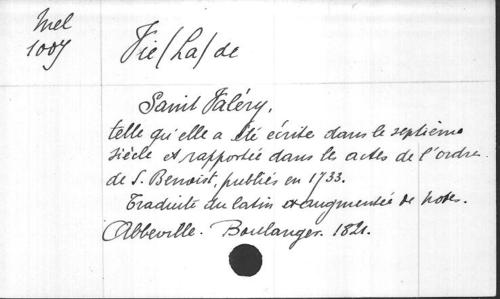 Mel
1007
Vie (La) de
Saint Valéry,
telle qu'elle a été écrite dans le septième
siècle et rapportée dans les actes de l'ordre
de S. Benoist, publiés en 1733.
Traduite du latin et augmentée de notes.
Abbeville. Boulanger. 1821.